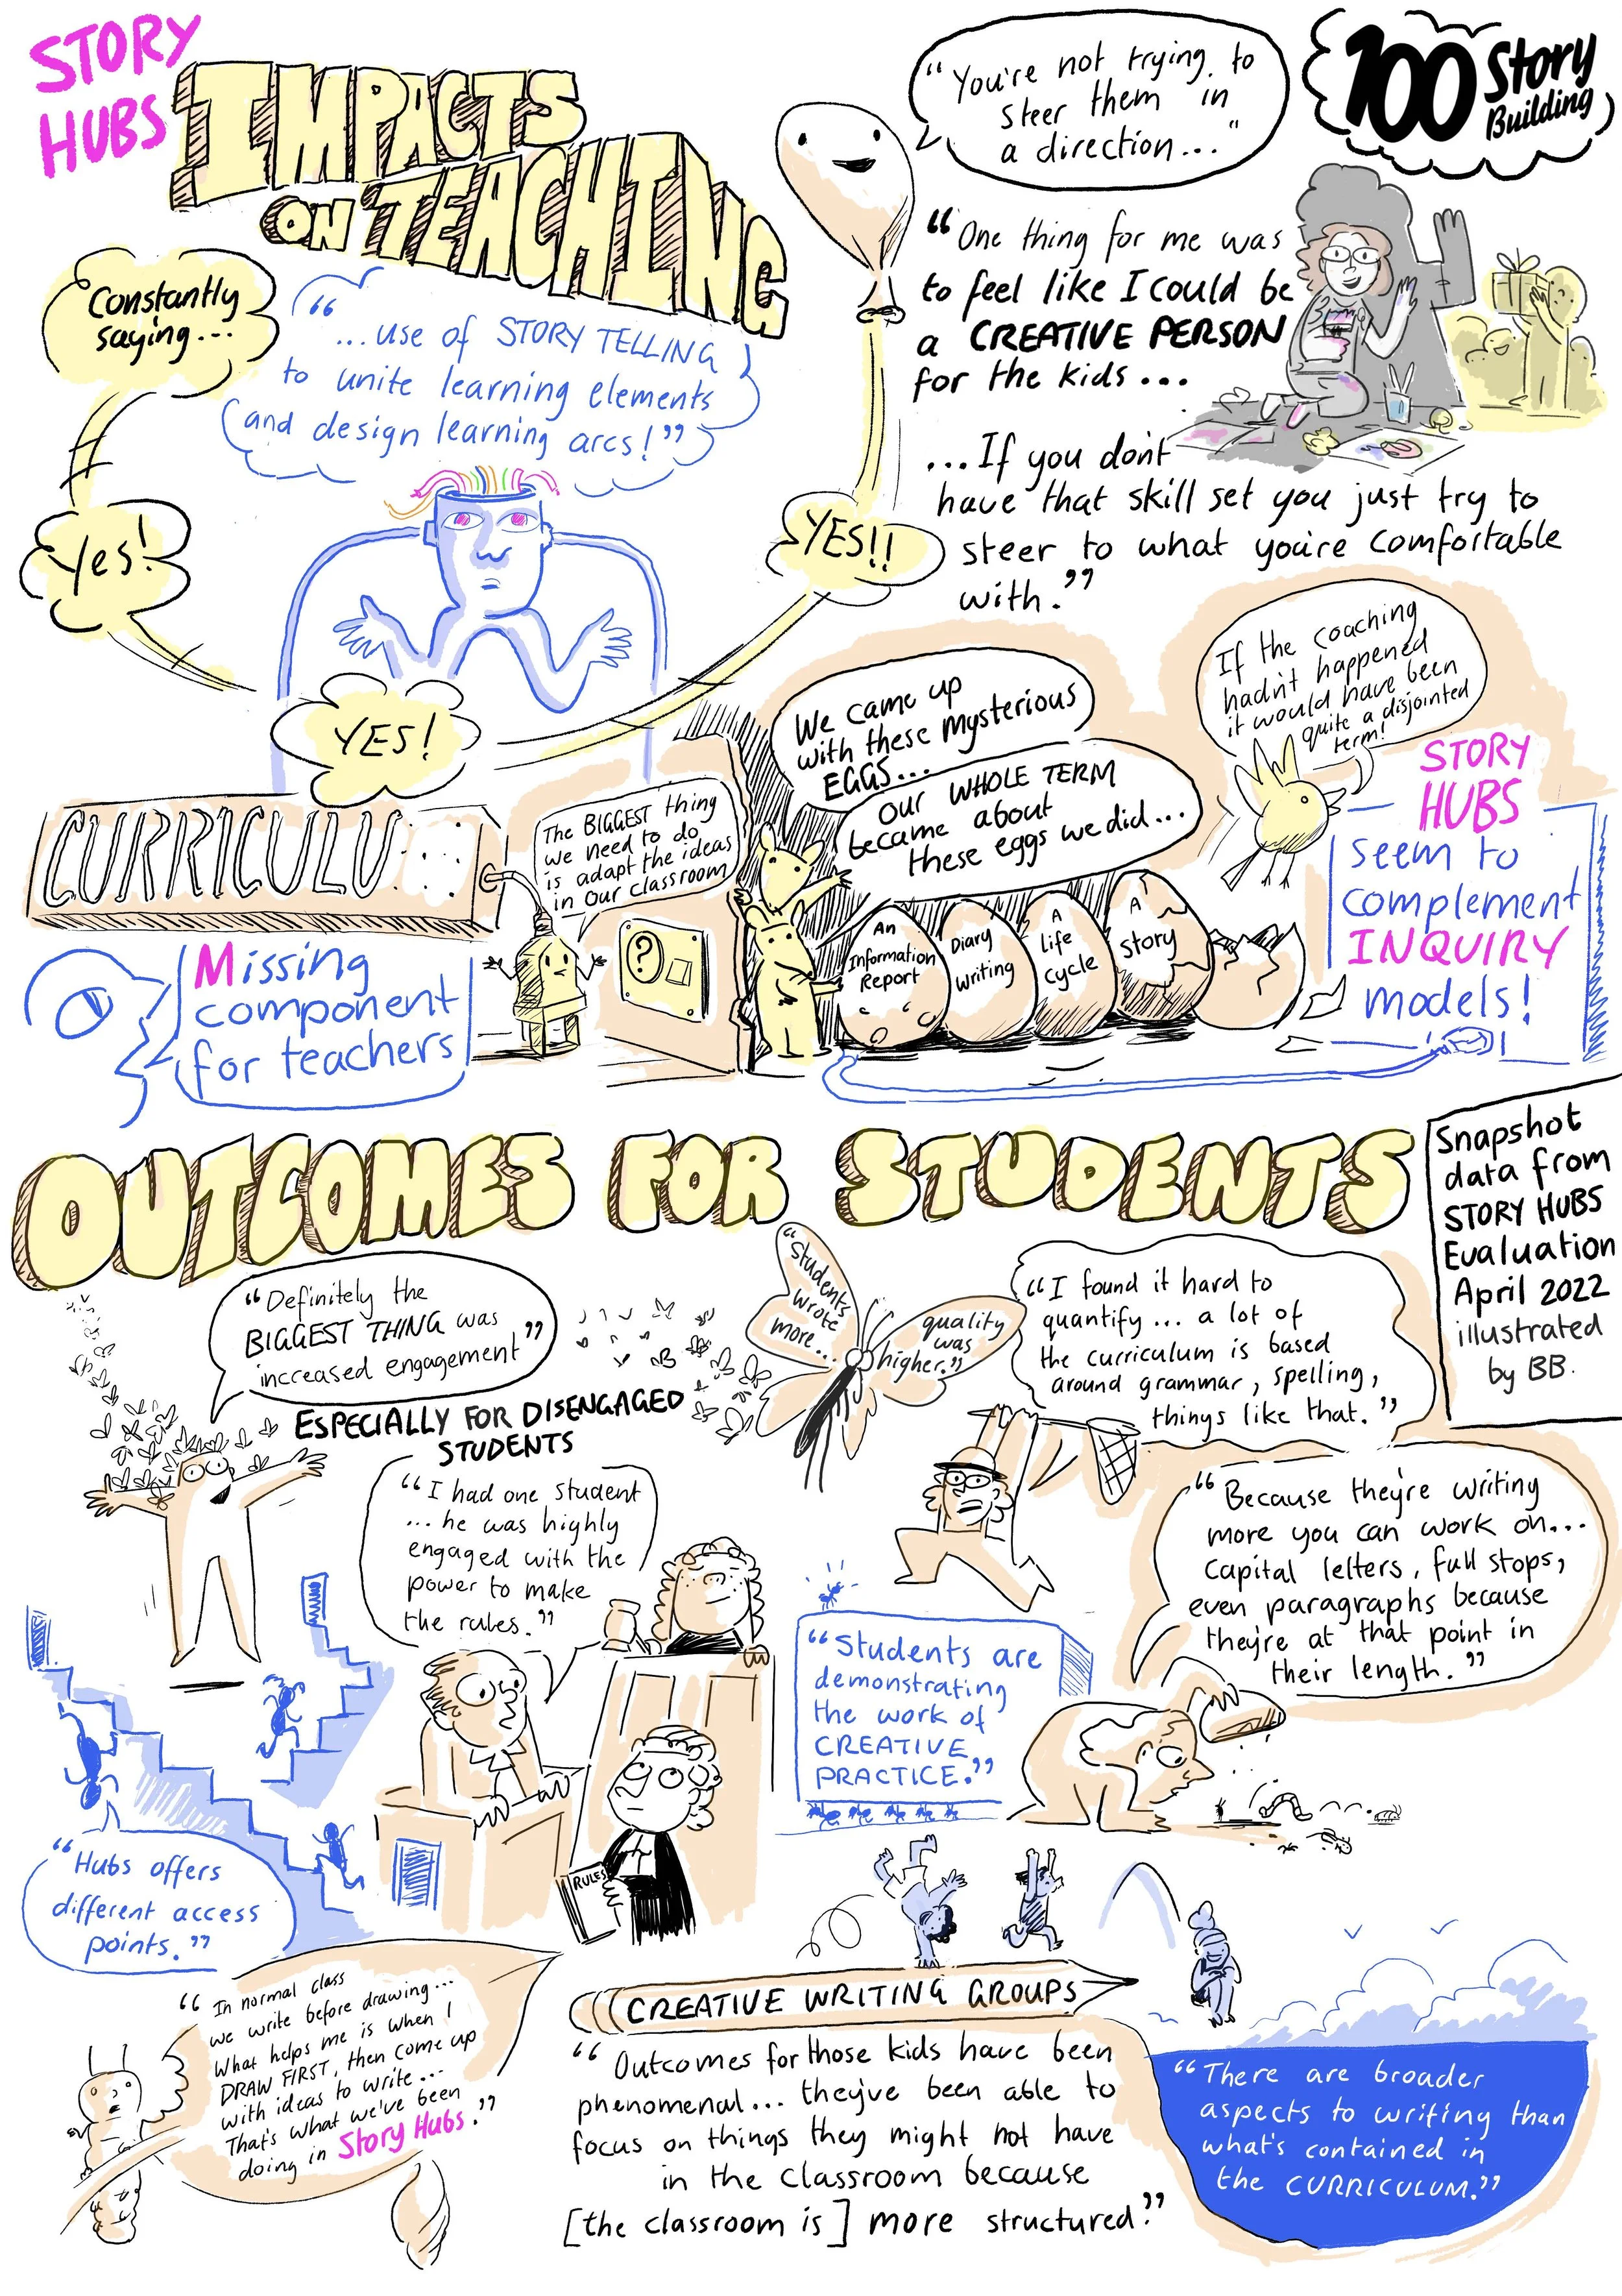 STORY
HUBS
IMPACTS
ON TEACHING
"You're not trying to
steer them in
a direction..."
100 Story
Building
Constantly
saying...
Yes!
YES!
YES!!
"...use of STORY TELLING
to unite learning elements
and design learning arcs!"
"One thing for me was
to feel like I could be
a CREATIVE PERSON
for the kids...
...If you don't
have that skill set you just try to
steer to what you're comfortable
with."
CURRICULU
Missing
component
for teachers
The BIGGEST thing
we need to do
is adapt the ideas
in our classroom
?
We came up
with these mysterious
EGGS...
OUR WHOLE TERM
became about
these eggs we did...
An
Information
Report
Diary
writing
A
life
cycle
A
story
If the coaching
hadn't happened
it would have been
quite a disjointed
term!
STORY
HUBS
seem to
complement
INQUIRY
models!
OUTCOMES FOR STUDENTS
Snapshot
data from
STORY HUBS
Evaluation
April 2022
illustrated
by BB.
"Definitely the
BIGGEST THING was
increased engagement"
ESPECIALLY FOR DISENGAGED
STUDENTS
"Students
wrote
more...
quality
was
higher."
"I found it hard to
quantify... a lot of
the curriculum is based
around grammar, spelling,
things like that."
"I had one student
... he was highly
engaged with the
power to make
the rules."
RULES
"Because they're writing
more you can work on...
Capital letters, full stops,
even paragraphs because
they're at that point in
their length."
"Students are
demonstrating
the work of
CREATIVE
PRACTICE."
"Hubs offers
different access
points."
"In normal class
we write before drawing...
What helps me is when I
DRAW FIRST, then come up
with ideas to write...
That's what we've been
doing in Story Hubs."
CREATIVE WRITING GROUPS
"Outcomes for those kids have been
phenomenal... they've been able to
focus on things they might not have
in the classroom because
[the classroom is] more structured."
"There are broader
aspects to writing than
what's contained in
the CURRICULUM."